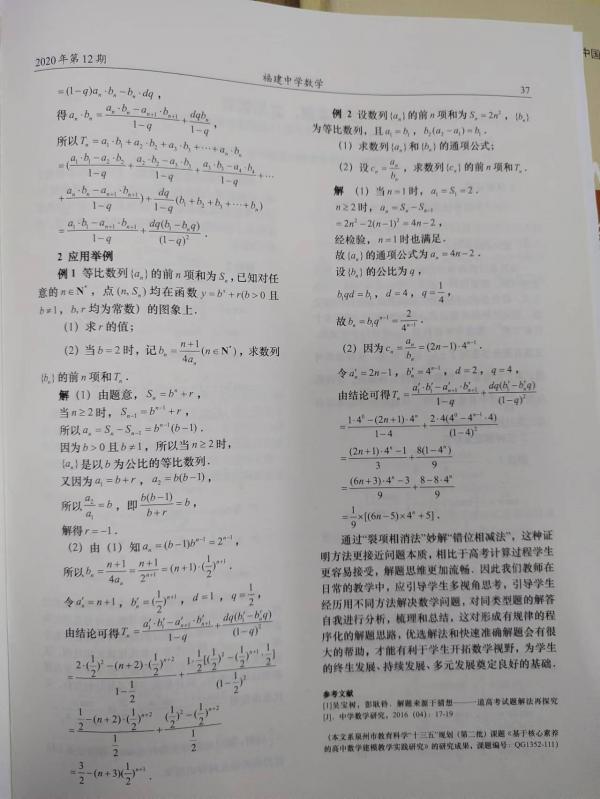 2020年第12期
福建中学数学
37
中国
=(1-q)aₙ·bₙ-bₙ·dq，
得aₙ·bₙ=(aₙ·bₙ-aₙ₊₁·bₙ₊₁)/(1-q)+dqbₙ/(1-q)，
所以Tₙ=a₁·b₁+a₂·b₂+a₃·b₃+…+aₙ·bₙ
=((a₁·b₁-a₂·b₂)/(1-q)+(a₂·b₂-a₃·b₃)/(1-q)+(a₃·b₃-a₄·b₄)/(1-q)+…
+(aₙ·bₙ-aₙ₊₁·bₙ₊₁)/(1-q))+dq/(1-q)(b₁+b₂+b₃+…+bₙ)
=(a₁·b₁-aₙ₊₁·bₙ₊₁)/(1-q)+dq(b₁-bₙq)/(1-q)²．
2 应用举例
例1 等比数列{aₙ}的前n项和为Sₙ,已知对任
意的n∈N*，点(n,Sₙ)均在函数y=bˣ+r(b>0且
b≠1，b,r均为常数）的图象上．
（1）求r的值；
（2）当b=2时，记bₙ=(n+1)/(4aₙ)(n∈N*)，求数列
{bₙ}的前n项和Tₙ．
解（1）由题意，Sₙ=bⁿ+r，
当n≥2时，Sₙ₋₁=bⁿ⁻¹+r，
所以aₙ=Sₙ-Sₙ₋₁=bⁿ⁻¹(b-1)．
因为b>0且b≠1，所以当n≥2时，
{aₙ}是以b为公比的等比数列．
又因为a₁=b+r，a₂=b(b-1)，
所以a₂/a₁=b，即b(b-1)/(b+r)=b，
解得r=-1．
（2）由（1）知aₙ=(b-1)bⁿ⁻¹=2ⁿ⁻¹，
所以bₙ=(n+1)/(4aₙ)=(n+1)/2ⁿ⁺¹=(n+1)·(1/2)ⁿ⁺¹．
令a′ₙ=n+1，b′ₙ=(1/2)ⁿ⁺¹，d=1，q=1/2，
由结论可得Tₙ=(a′₁·b′₁-a′ₙ₊₁·b′ₙ₊₁)/(1-q)+dq(b′₁-b′ₙq)/(1-q)²
=(2·(1/2)²-(n+2)·(1/2)ⁿ⁺²)/(1-1/2)+(1·1/2[(1/2)²-(1/2)ⁿ⁺¹·1/2])/(1-1/2)²
=(1/2-(n+2)·(1/2)ⁿ⁺²)/(1/2)+((1/2)²-(1/2)ⁿ⁺²)/(1/2)
=3/2-(n+3)(1/2)ⁿ⁺¹．
例2 设数列{aₙ}的前n项和为Sₙ=2n²，{bₙ}
为等比数列，且a₁=b₁，b₂(a₂-a₁)=b₁．
（1）求数列{aₙ}和{bₙ}的通项公式；
（2）设cₙ=aₙ/bₙ，求数列{cₙ}的前n项和Tₙ．
解（1）当n=1时，a₁=S₁=2．
n≥2时，aₙ=Sₙ-Sₙ₋₁
=2n²-2(n-1)²=4n-2，
经检验，n=1时也满足．
故{aₙ}的通项公式为aₙ=4n-2．
设{bₙ}的公比为q，
b₁qd=b₁，d=4，q=1/4，
故bₙ=b₁qⁿ⁻¹=2/4ⁿ⁻¹．
（2）因为cₙ=aₙ/bₙ=(2n-1)·4ⁿ⁻¹．
令a′ₙ=2n-1，b′ₙ=4ⁿ⁻¹，d=2，q=4，
由结论可得Tₙ=(a′₁·b′₁-a′ₙ₊₁·b′ₙ₊₁)/(1-q)+dq(b′₁-b′ₙq)/(1-q)²
=(1·4⁰-(2n+1)·4ⁿ)/(1-4)+2·4(4⁰-4ⁿ⁻¹·4)/(1-4)²
=((2n+1)·4ⁿ-1)/3+8(1-4ⁿ)/9
=((6n+3)·4ⁿ-3)/9+(8-8·4ⁿ)/9
=1/9×[(6n-5)×4ⁿ+5]．
通过“裂项相消法”妙解“错位相减法”，这种证
明方法更接近问题本质，相比于高考计算过程学生
更容易接受，解题思维更加流畅．因此我们教师在
日常的教学中，应引导学生多视角思考，引导学生
经历用不同方法解决数学问题，对同类型题的解答
自我进行分析，梳理和总结，这对形成有规律的程
序化的解题思路，优选解法和快速准确解题会有很
大的帮助，才能有利于学生开拓数学视野，为学生
的终生发展、持续发展、多元发展奠定良好的基础．
参考文献
[1]吴宝树，彭耿铃．解题来源于猜想——一道高考试题解法再探究
[J]．中学数学研究，2016（04）：17-19
（本文系泉州市教育科学“十三五”规划（第二批）课题《基于核心素养
的高中数学建模教学实践研究》的研究成果，课题编号：QG1352-111）